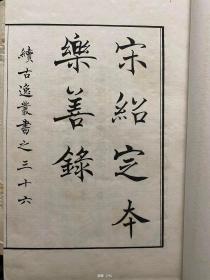 宋紹定本
樂善錄
續古逸叢書之三十六